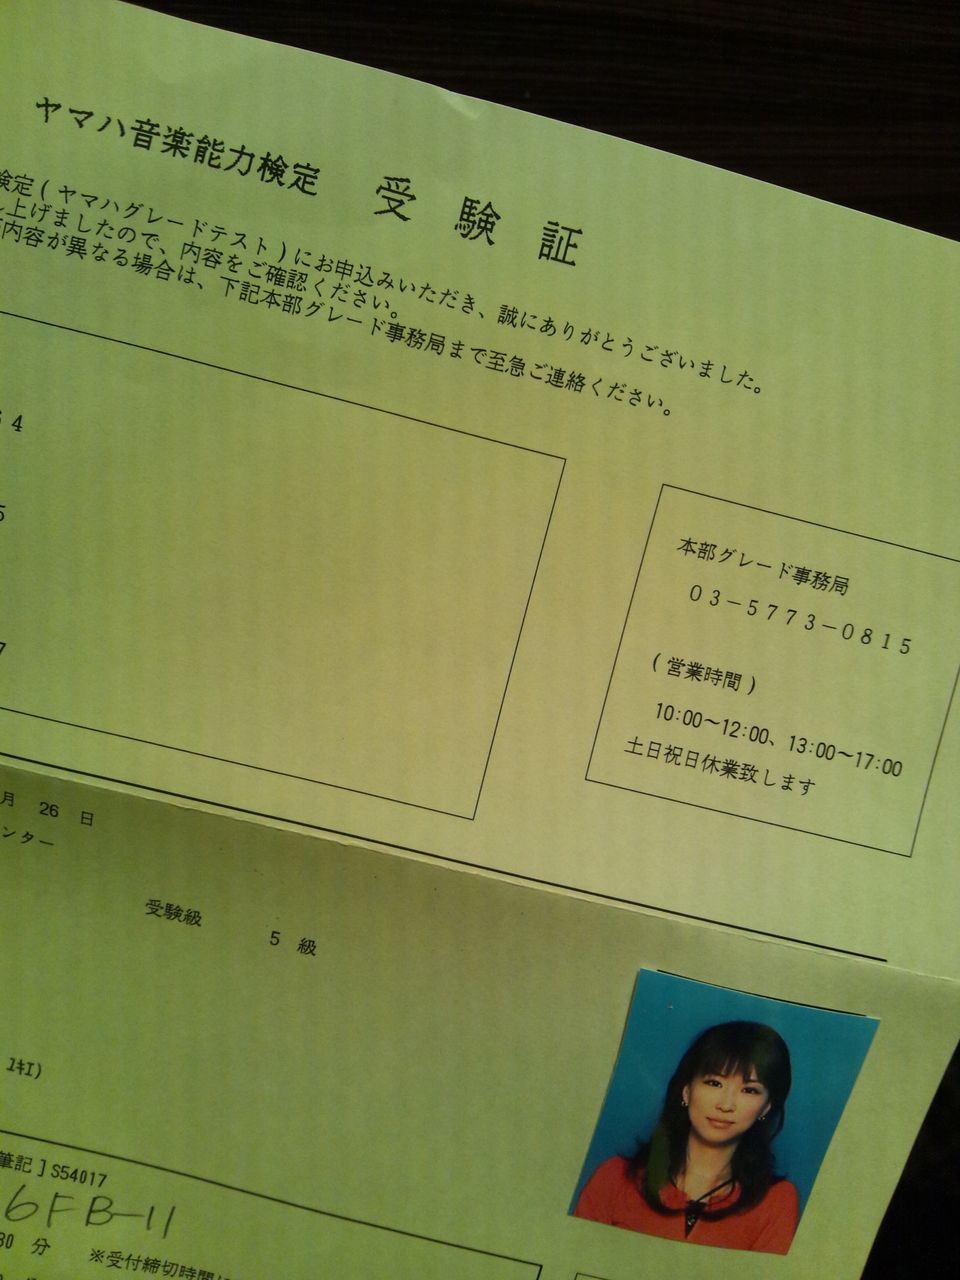 ヤマハ音楽能力検定 受験証
検定(ヤマハグレードテスト)にお申込みいただき、誠にありがとうございました。
し上げましたので、内容をご確認ください。
内容が異なる場合は、下記本部グレード事務局まで至急ご連絡ください。
4
5
7
本部グレード事務局
03-5773-0815
(営業時間)
10:00～12:00、13:00～17:00
土日祝日休業致します
月 26 日
ンター
受験級 5 級
ﾕｷｴ)
筆記]S54017
6FB-11
30 分 ※受付締切時間